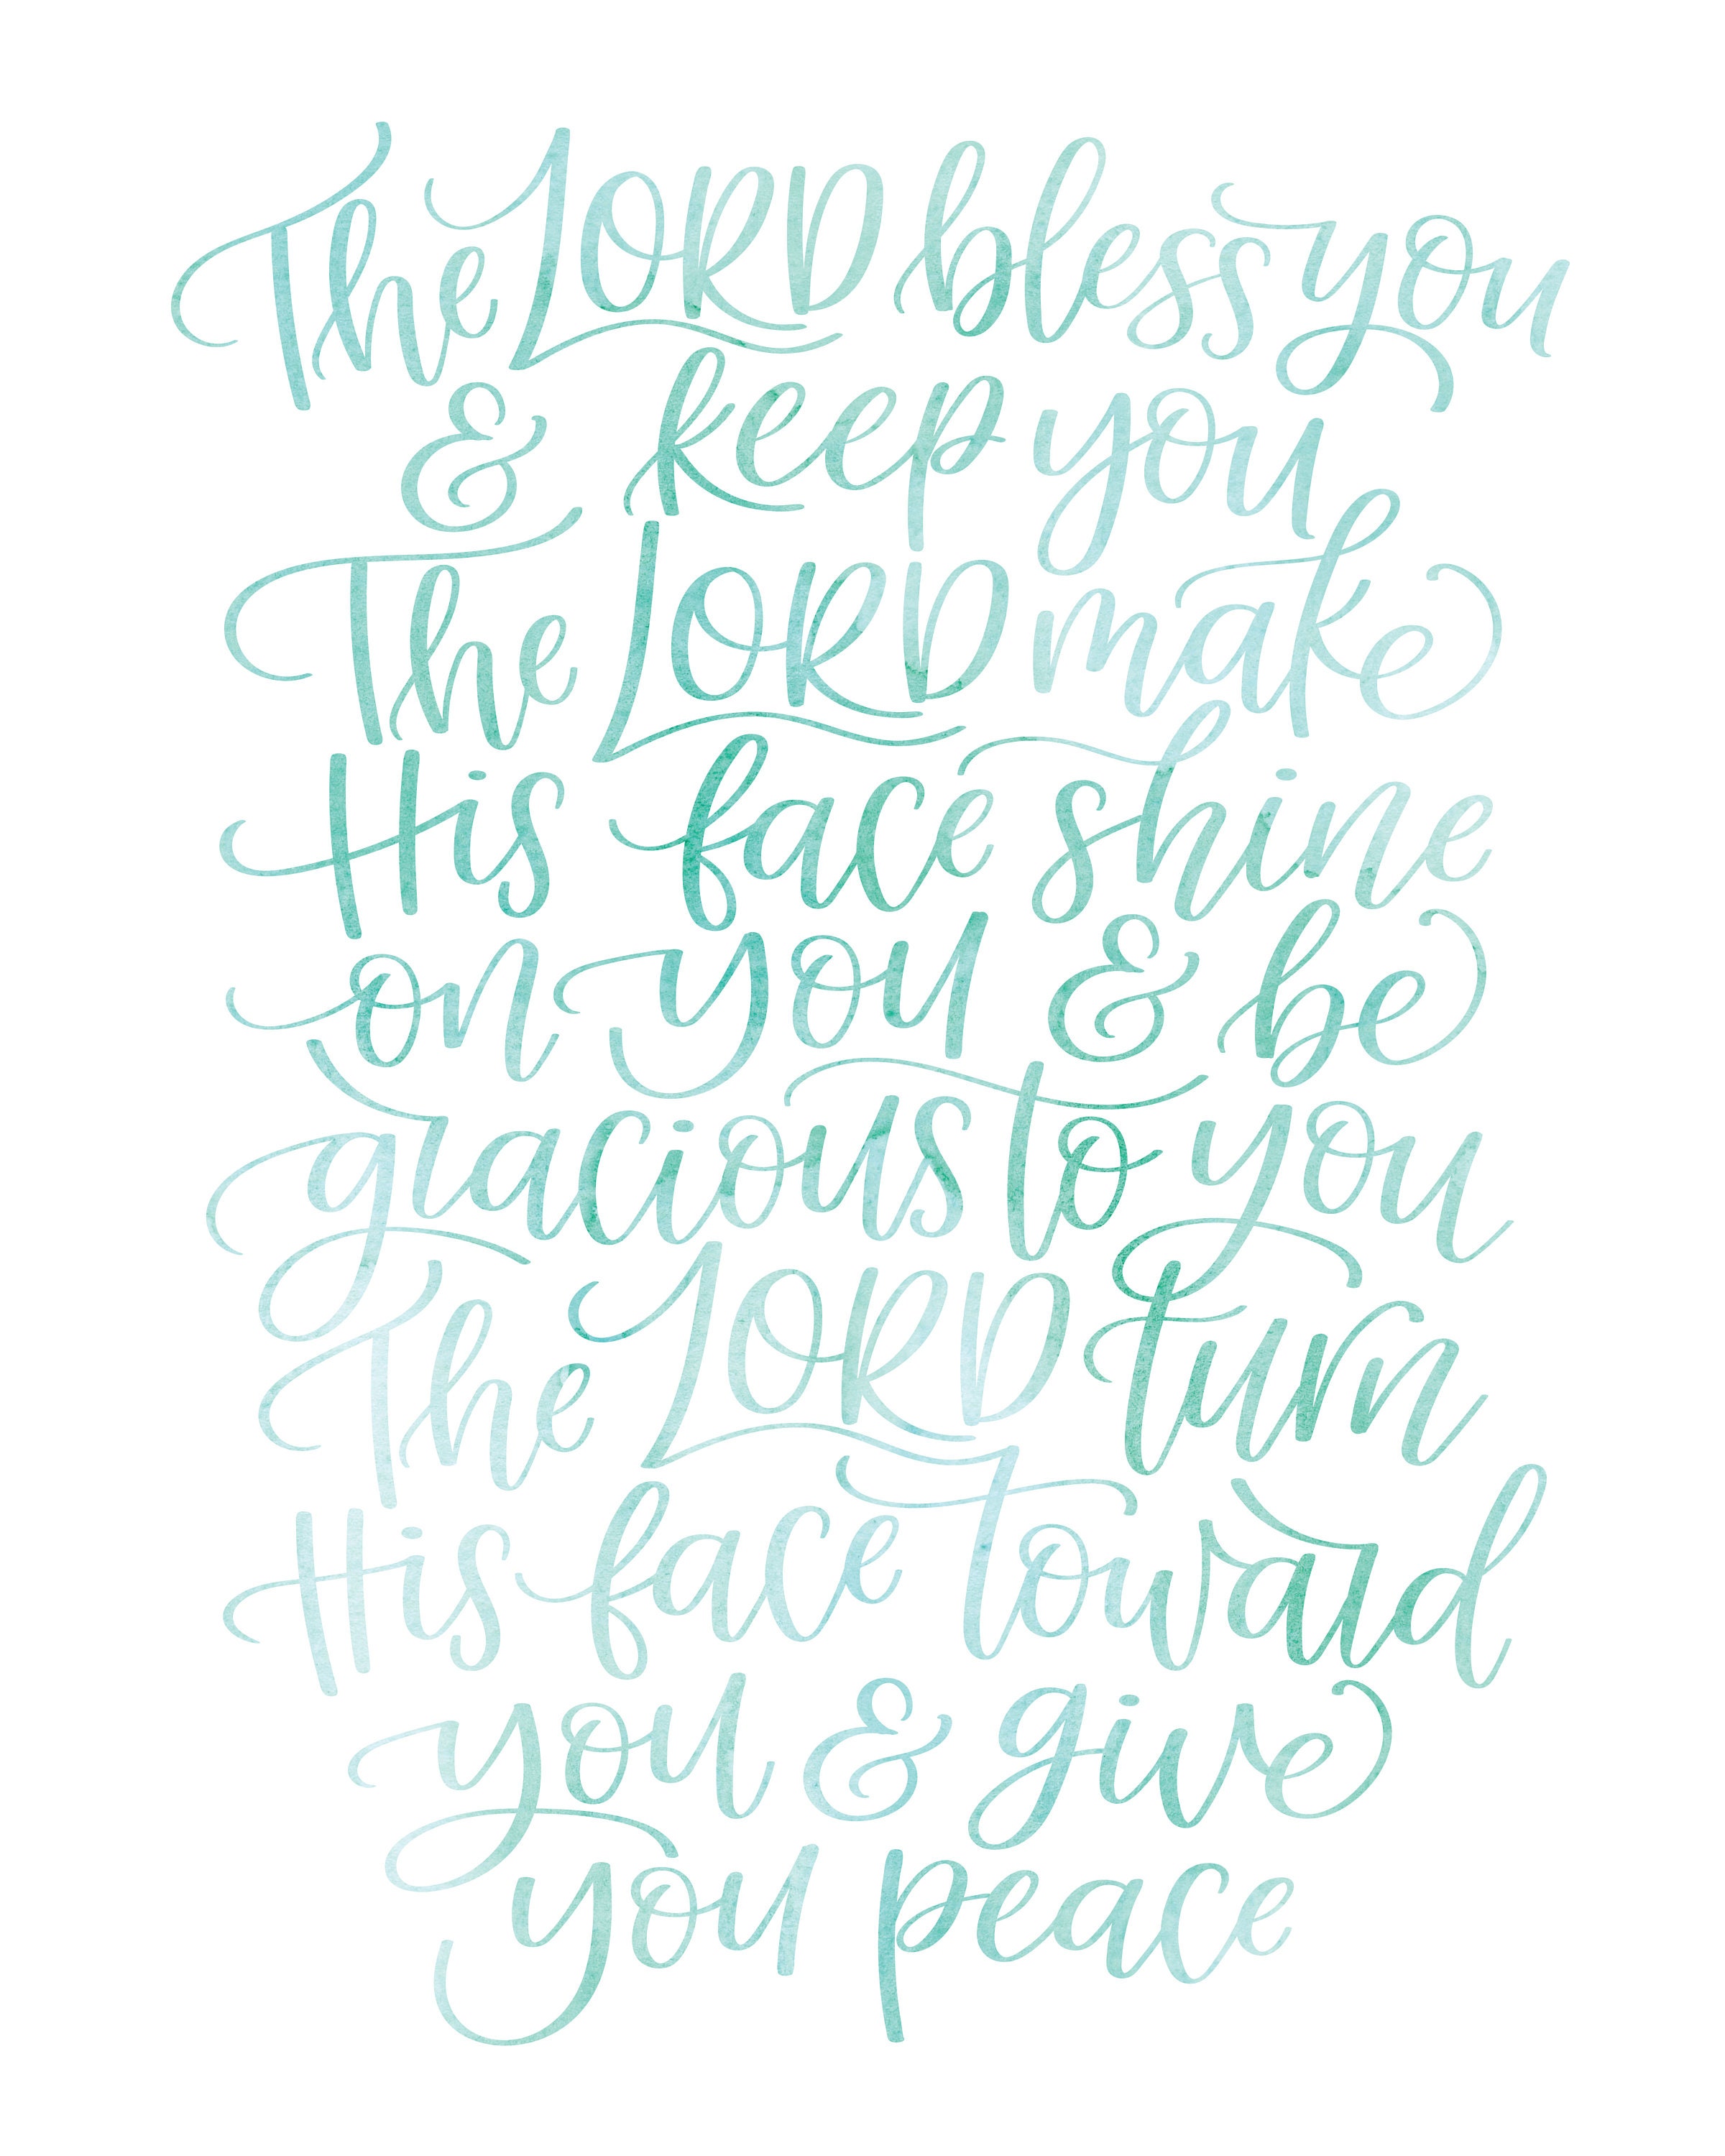 The LORD bless you
& keep you
The LORD make
His face shine
on you & be
gracious to you
The LORD turn
His face toward
you & give
you peace